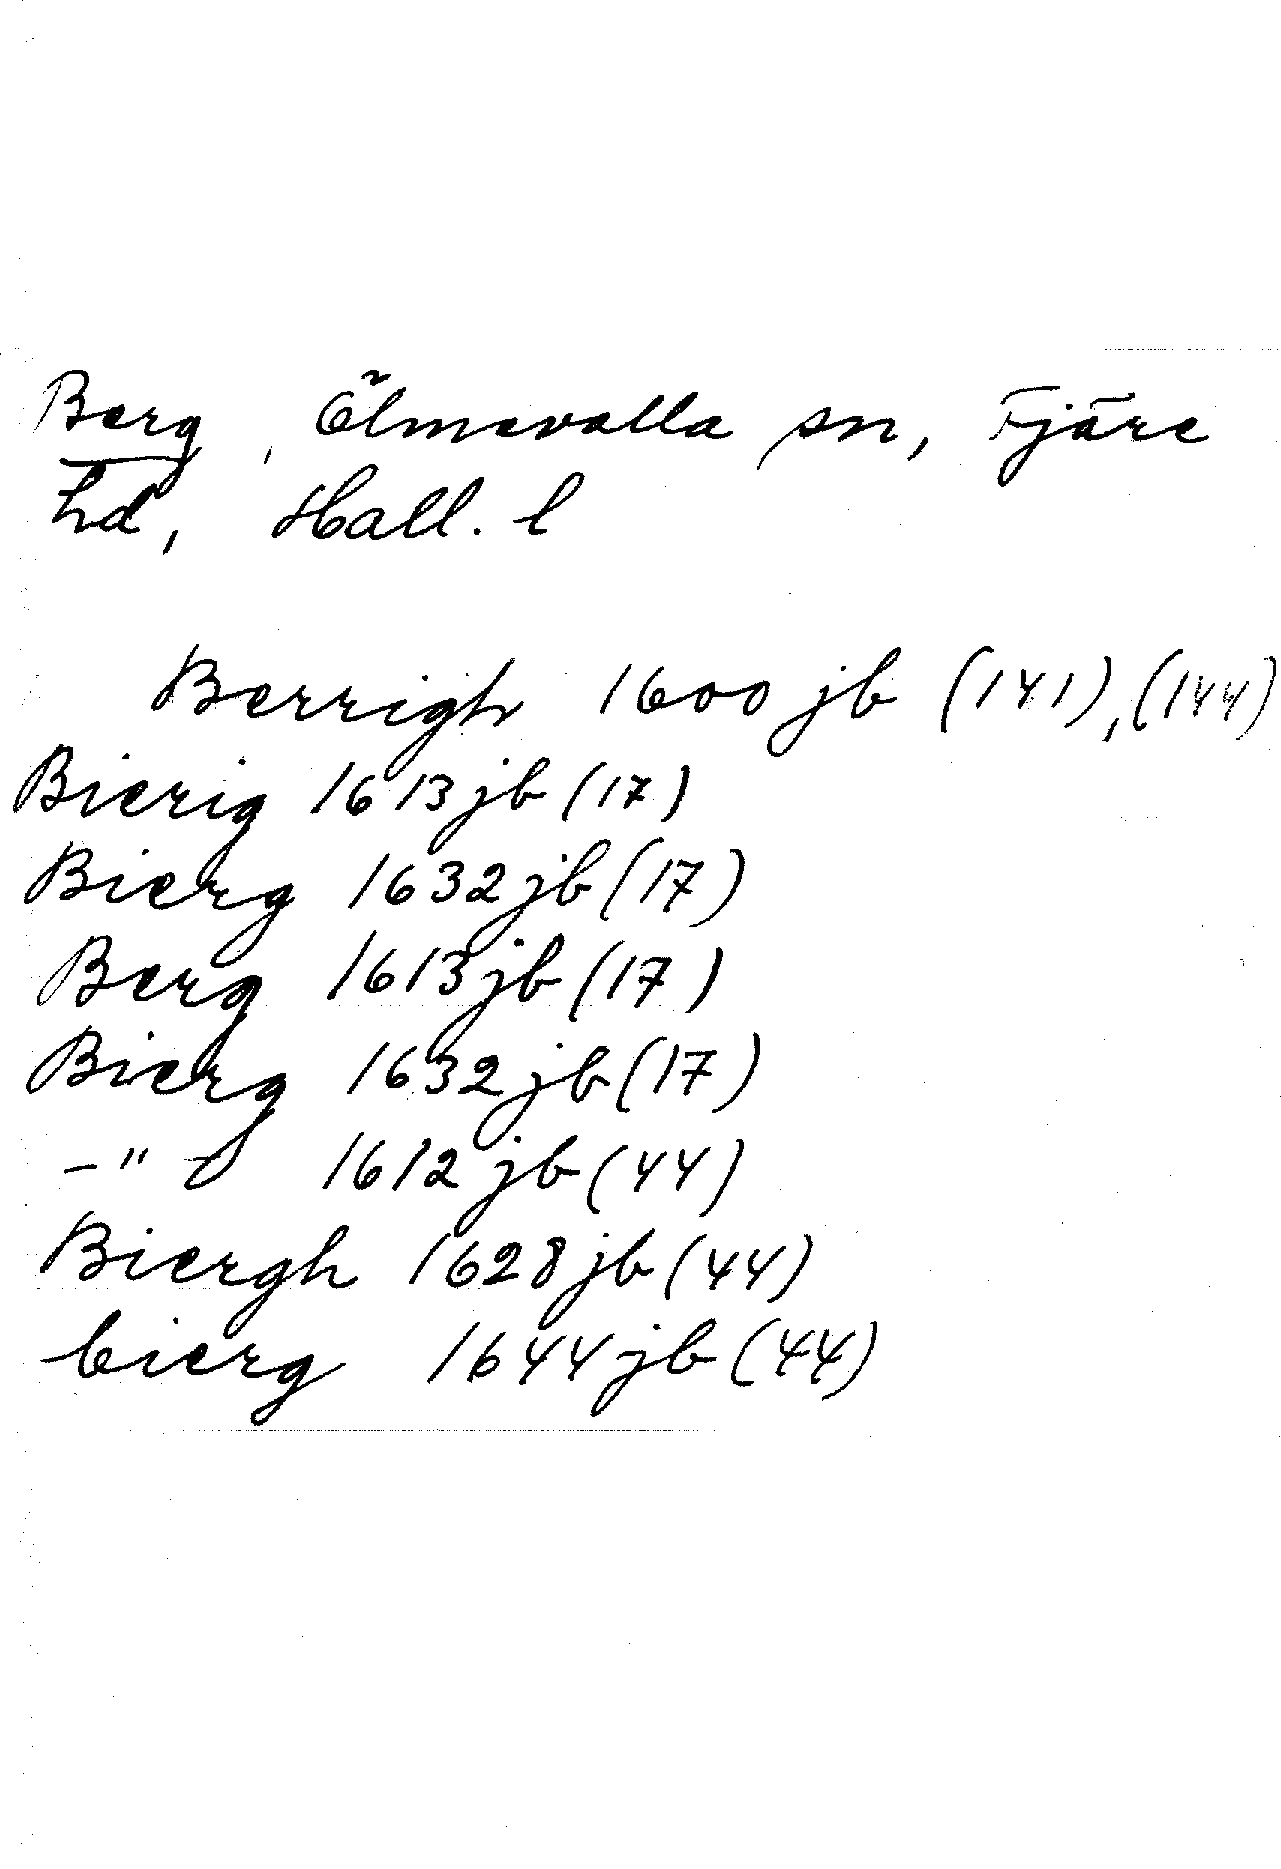 Berg, Ölmevalla sn, Fjäre
hd, Hall. l
Berrigh 1600 jb (141), (144)
Bierig 1613 jb (17)
Bierg 1632 jb (17)
Berg 1613 jb (17)
Bierg 1632 jb (17)
-"- 1612 jb (44)
Biergh 1628 jb (44)
bierg 1644 jb (44)